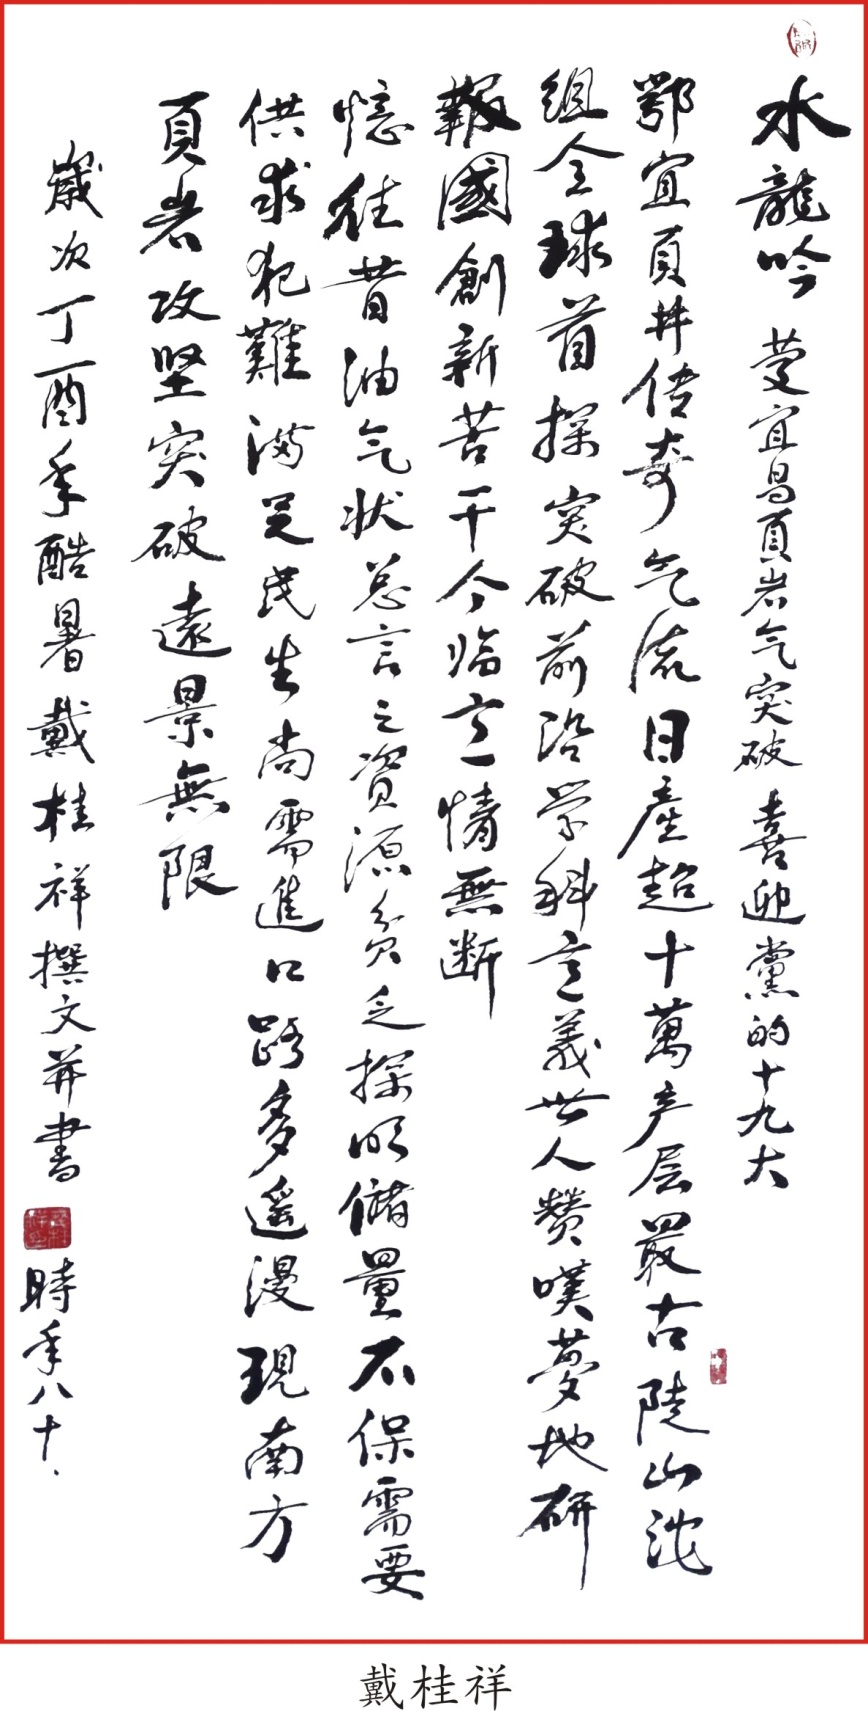 水龍吟 慶宜昌頁岩气突破 喜迎黨的十九大
鄂宜頁井传奇气流日產超十萬产层最古陡山沱
組全球首探突破前沿学科意義世人赞嘆夢地研
報國創新苦干今临意情無断
憶往昔油气状总言之資源贫乏探明儲量不保需要
供求犯難满足民生尚需進口路多遥漫現南方
頁岩攻坚突破遠景無限
歲次丁酉年酷暑戴桂祥撰文并書 時年八十
戴桂祥